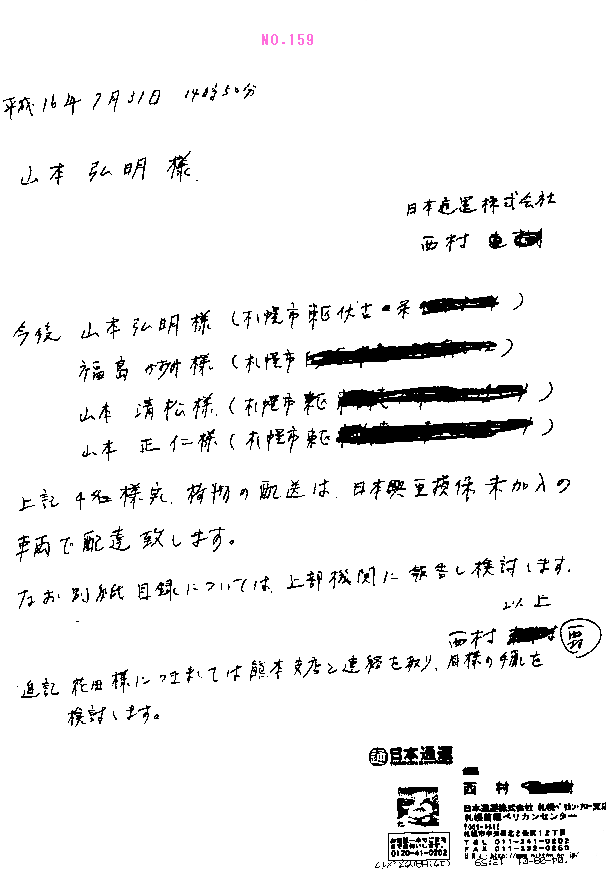 NO.159
平成16年7月31日 14時50分
山本 弘明 様
日本通運株式会社
西村
今後 山本弘明様(札幌市東区伏古一条 )
福島 様(札幌市 )
山本 清松様(札幌市東区 )
山本 正仁様(札幌市東区 )
上記 4名様宛、荷物の配送は、日本興亜損保未加入の
車両で配達致します。
なお 別紙目録については、上部機関に報告し検討します。
以上
西村
追記 花田様につきましては熊本支店と連絡を取り、同様の手配を
検討します。
日本通運
西村
日本通運株式会社 札幌ペリカン・アロー支店
札幌首都ペリカンセンター
札幌市中央区北2条東12丁目
TEL 011-241-0202
FAX 011-292-0260
0120-41-0202